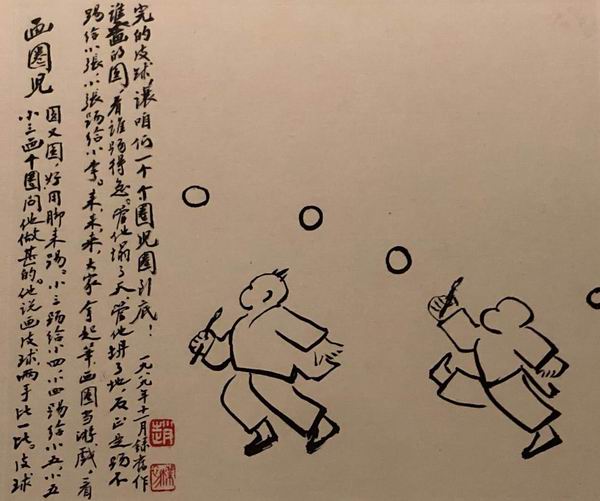 画圈児
小三画个圈问他做甚的。他说画皮球两手比一比。皮球
圆又圆,好用脚来踢。小三踢给小四,小四踢给小五,小五
踢给小張,小張踢给小李。来,来,来,大家拿起笔,画圈当游戏,看
谁画的圆,看谁踢得急。管他塌了天,管他坍了地,反正是踢不
完的皮球,讓咱们一个个圈児圈到底!
一九八九年十一月録旧作